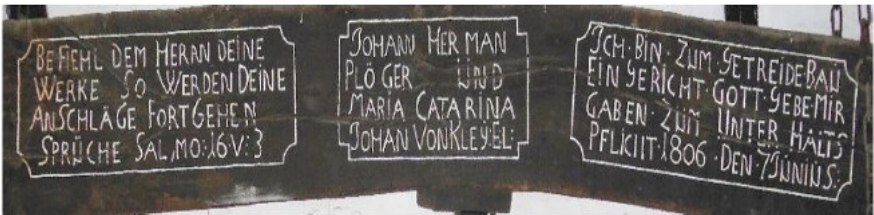 BEFIEHL DEM HERAN DEINE
WERKE SO WERDEN DEINE
ANSCHLÄGE FORTGEHEN
SPRÜCHE SAL,MO:16·V:3
JOHANN HERMAN
PLÖGER UND
MARIA CATARINA
JOHAN VONKLEYEL:
JCH·BIN·ZUM·GETREIDEBAU
EINGERICHT·GOTT·GEBEMIR
GABEN·ZUM UNTERHALTS
PFLICHT·1806·DEN·7JUNIUS: